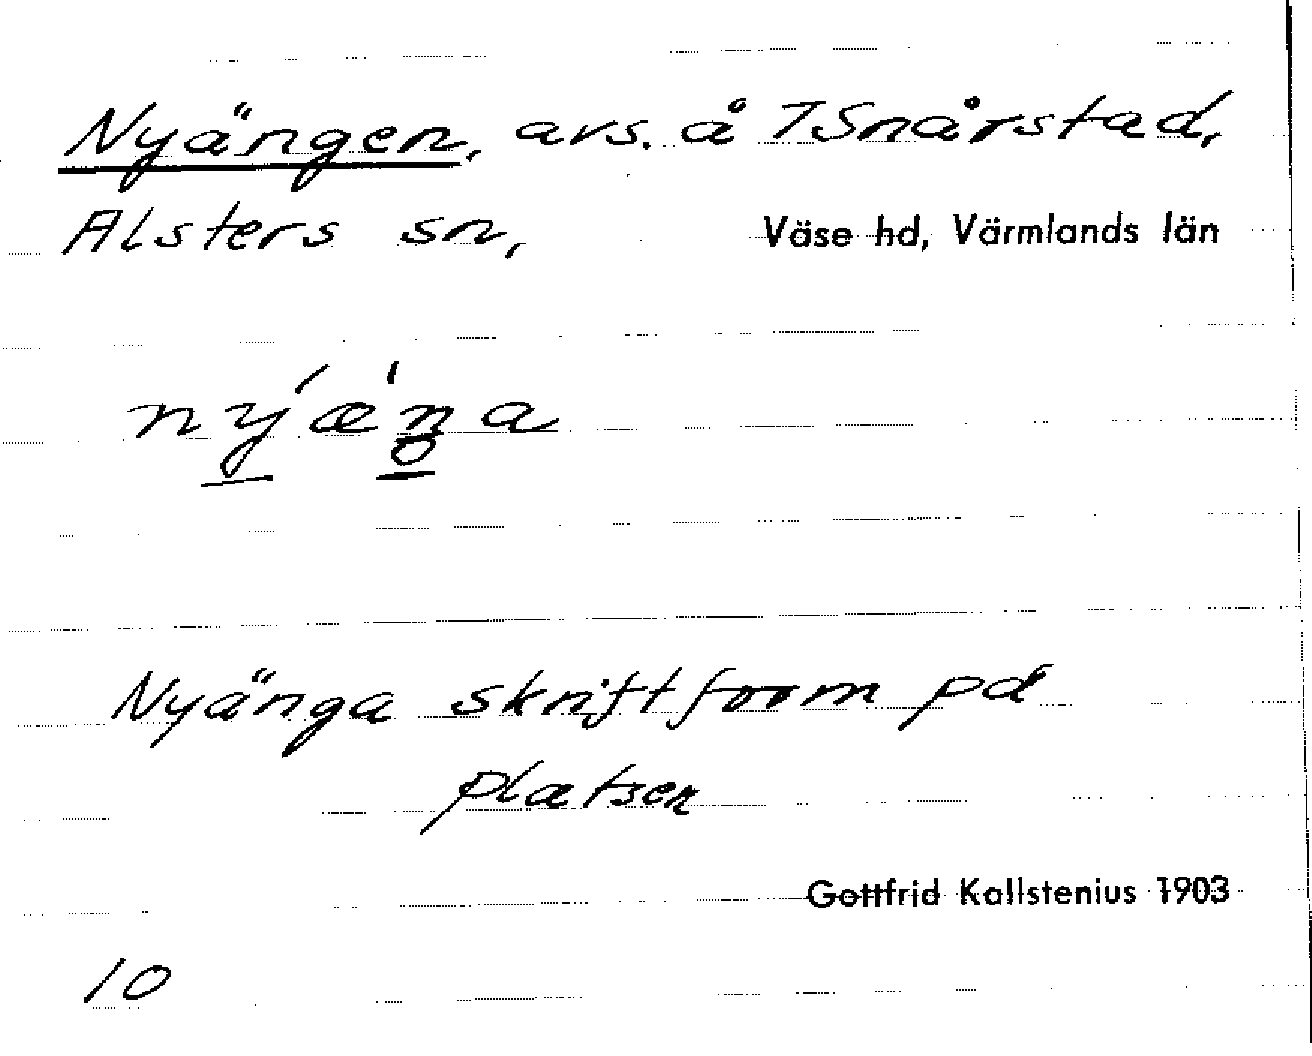 Nyängen, avs. å 7 Snårstad,
Alsters sn, Väse hd, Värmlands län
Nyänga skriftform på
platsen
Gottfrid Kallstenius 1903
10